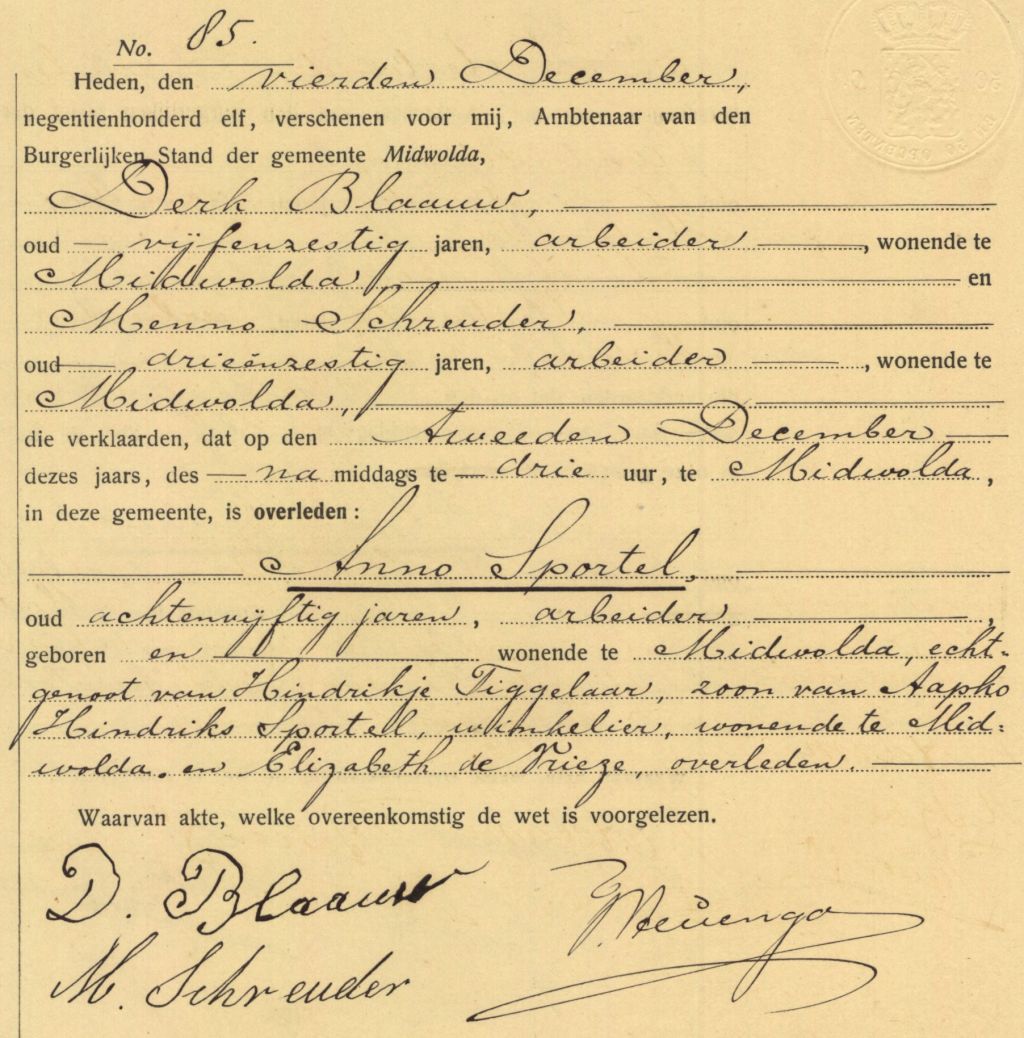 No. 85.
Heden, den vierden December,
negentienhonderd elf, verschenen voor mij, Ambtenaar van den
Burgerlijken Stand der gemeente Midwolda,
Derk Blaauw,
oud vijfenzestig jaren, arbeider, wonende te
Midwolda, en
Menno Schreuder,
oud drieënzestig jaren, arbeider, wonende te
Midwolda,
die verklaarden, dat op den tweeden December
dezes jaars, des na middags te drie uur, te Midwolda,
in deze gemeente, is overleden:
Anno Sportel,
oud achtenvijftig jaren, arbeider,
geboren en wonende te Midwolda, echt-
genoot van Hindrikje Tiggelaar, zoon van Aapko
Hindriks Sportel, winkelier, wonende te Mid:
wolda, en Elizabeth de Vrieze, overleden.
Waarvan akte, welke overeenkomstig de wet is voorgelezen.
D. Blaauw
M. Schreuder